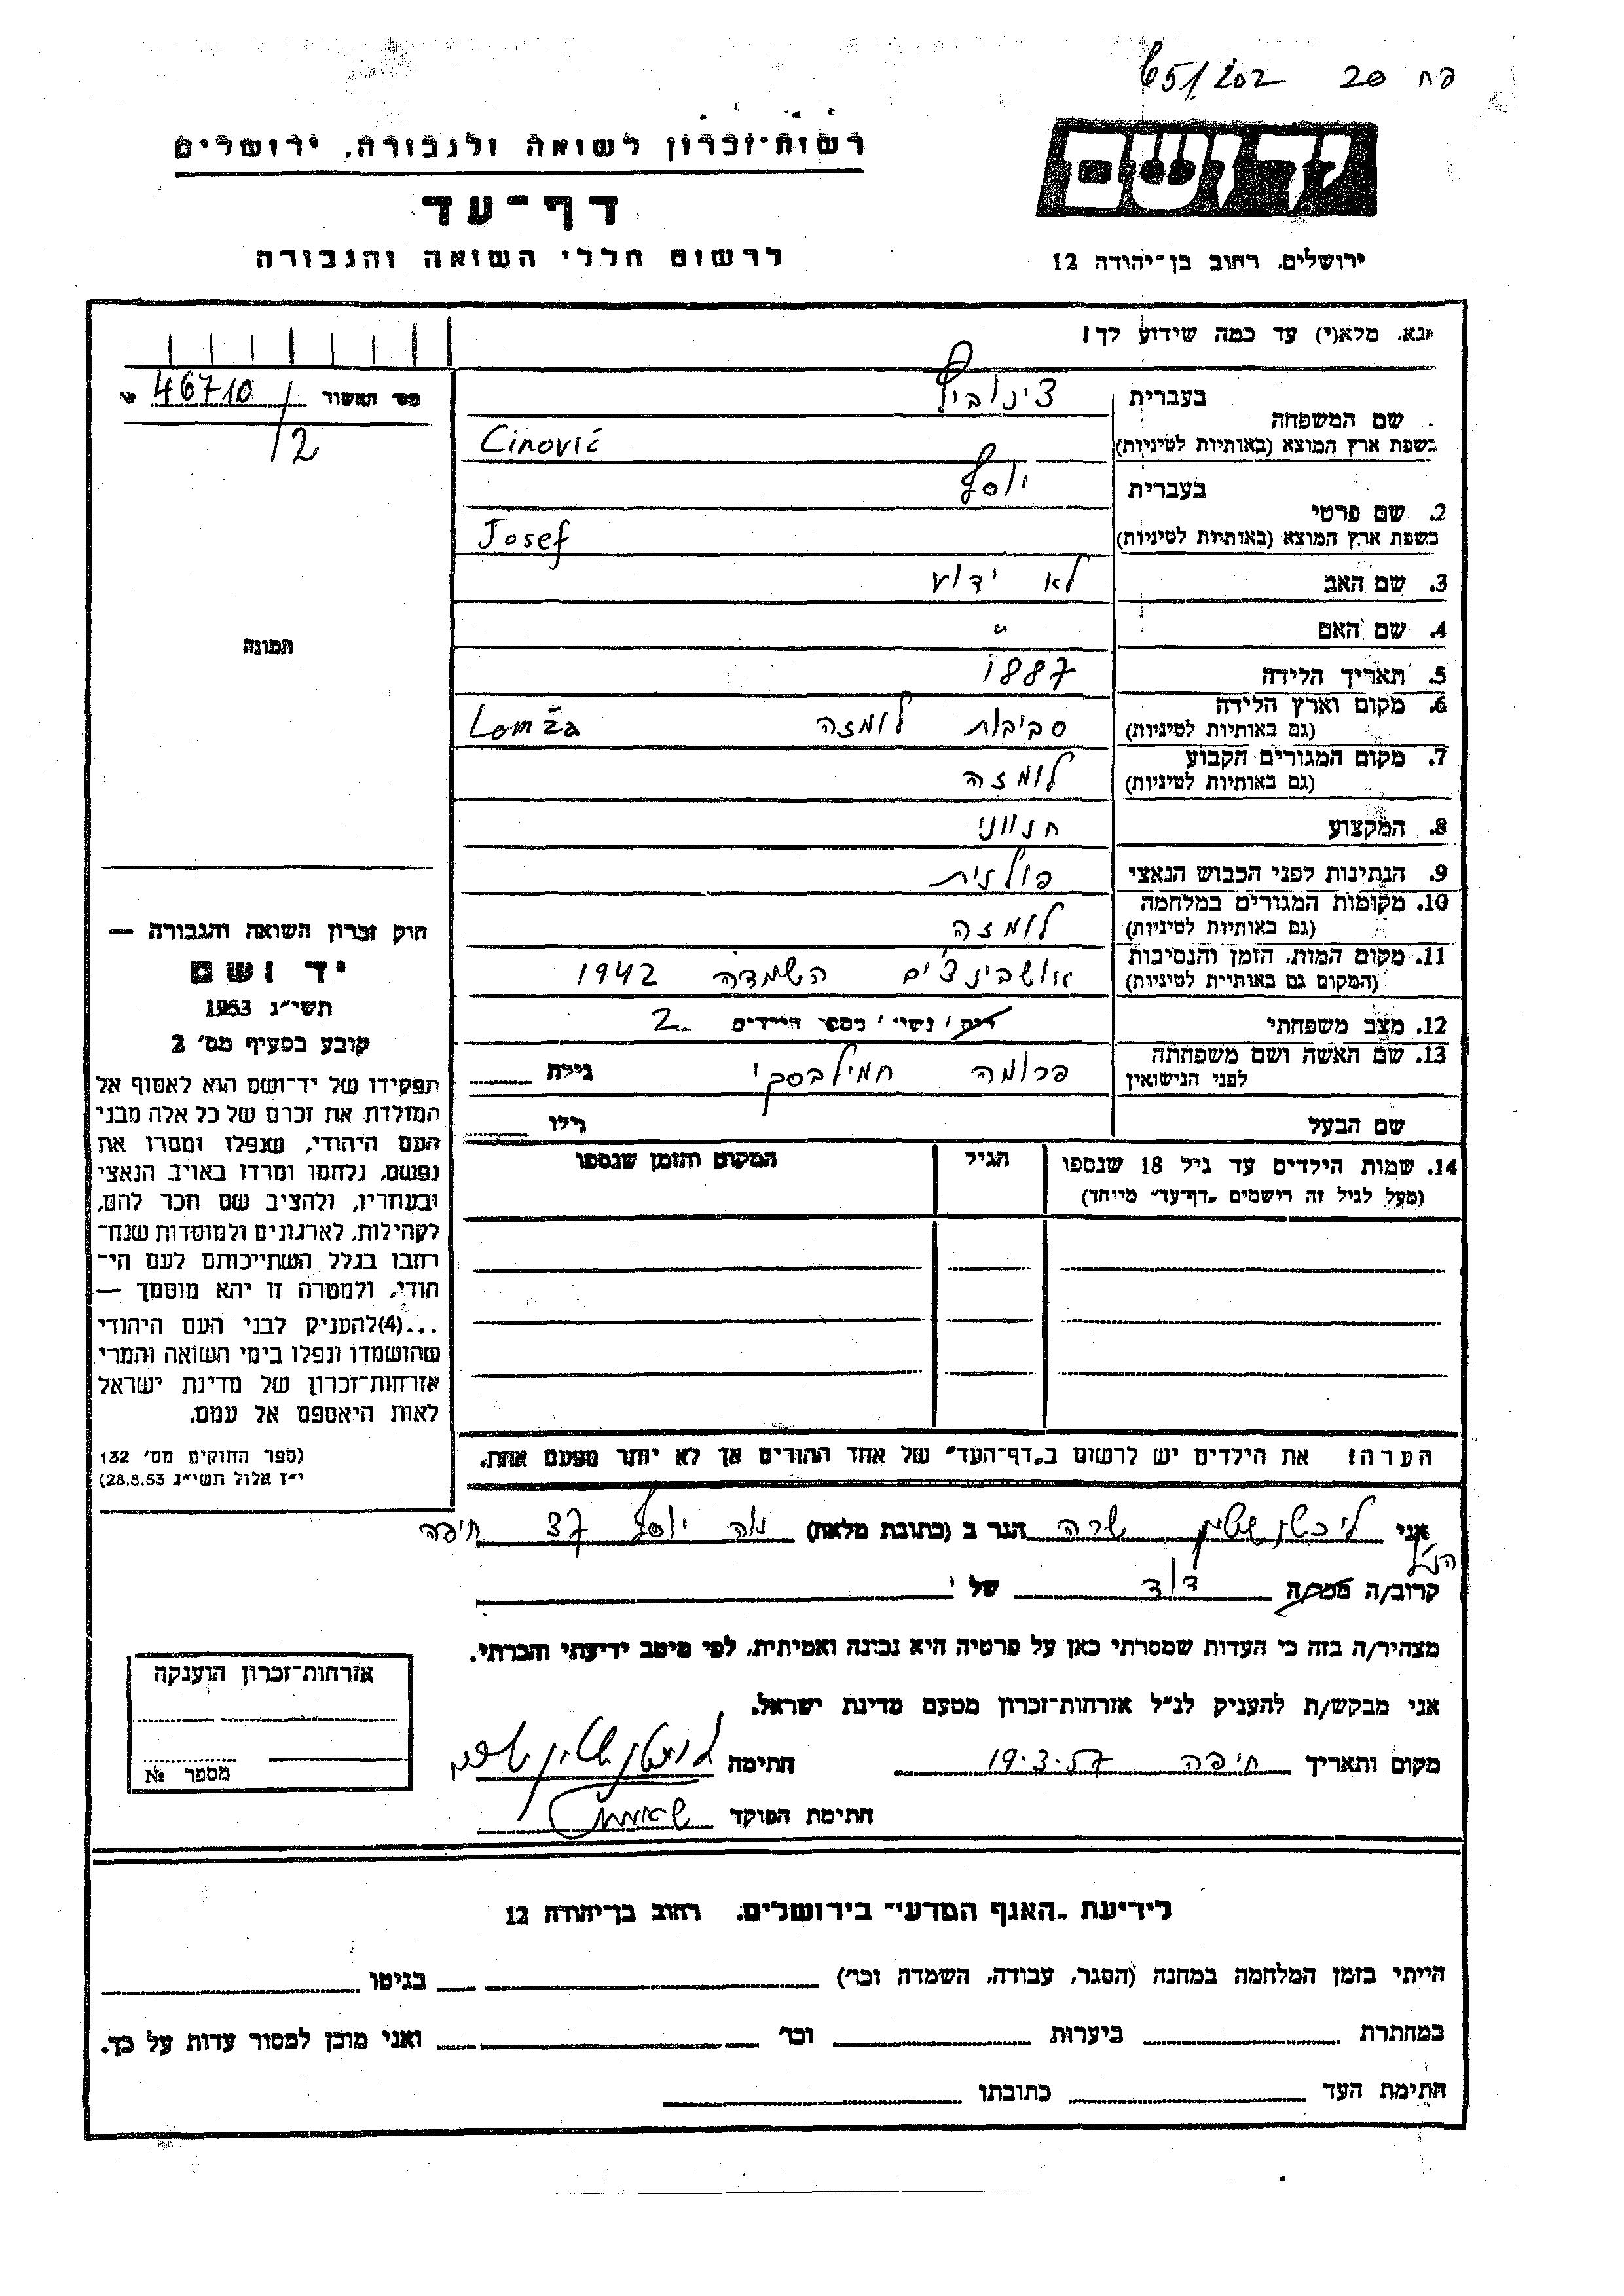 פח 20 651/202
יד ושם
ירושלים. רחוב בן-יהודה 12
רשות-זכרון לשואה ולגבורה. ירושלים
דף-עד
לרשום חללי השואה והגבורה
נא. מלא(י) עד כמה שידוע לך!
מס' האשור 46710
/2
שם המשפחה
בעברית צינוביץ
בשפת ארץ המוצא (באותיות לטיניות) Cinović
2. שם פרטי
בעברית יוסף
בשפת ארץ המוצא (באותיות לטיניות) Josef
3. שם האב לא ידוע
4. שם האם "
5. תאריך הלידה 1887
6. מקום וארץ הלידה
(גם באותיות לטיניות) סביבות לומזה Lomža
7. מקום המגורים הקבוע
(גם באותיות לטיניות) לומזה
8. המקצוע חנווני
9. הנתינות לפני הכבוש הנאצי פולנית
10. מקומות המגורים במלחמה
(גם באותיות לטיניות) לומזה
11. מקום המות. הזמן והנסיבות
(המקום גם באותיות לטיניות) אושבינצ'ים השמדה 1942
12. מצב משפחתי רוק / נשוי / מספר הילדים 2
13. שם האשה ושם משפחתה
לפני הנישואין פרומה חמילבסקי גילה
שם הבעל גילו
14. שמות הילדים עד גיל 18 שנספו
(מעל לגיל זה רושמים "דף-עד" מיוחד)
הגיל
המקום והזמן שנספו
הערה! את הילדים יש לרשום ב"דף-העד" של אחד ההורים אך לא יותר מפעם אחת.
תמונה
חוק זכרון השואה והגבורה —
יד ושם
תשי"ג 1953
קובע בסעיף מס' 2
תפקידו של יד-ושם הוא לאסוף אל
המולדת את זכרם של כל אלה מבני
העם היהודי, שנפלו ומסרו את
נפשם, נלחמו ומרדו באויב הנאצי
ובעוזריו, ולהציב שם וזכר להם,
לקהילות, לארגונים ולמוסדות שנח-
רחבו בגלל השתייכותם לעם הי-
הודי, ולמטרה זו יהא מוסמך —
...(4)להעניק לבני העם היהודי
שהושמדו ונפלו בימי השואה והמרי
אזרחות-זכרון של מדינת ישראל
לאות היאספם אל עמם.
(ספר החוקים מס' 132
י"ז אלול תשי"ג 28.8.53)
אני ליכטנשטין שרה הגר ב (כתובת מלאה) נוה יוסף 37 חיפה
קרוב/ה מכר/ה דוד של הנ"ל
מצהיר/ה בזה כי העדות שמסרתי כאן על פרטיה היא נכונה ואמיתית. לפי מיטב ידיעתי והכרתי.
אני מבקש/ת להעניק לנ"ל אזרחות-זכרון מטעם מדינת ישראל.
מקום ותאריך חיפה 19.3.57 חתימה ליכטנשטין שרה
חתימת הפוקד
אזרחות-זכרון הוענקה
מספר №
לידיעת "האגף המדעי" בירושלים. רחוב בן-יהודה 12
הייתי בזמן המלחמה במחנה (הסגר, עבודה, השמדה וכו') בגיטו
במחתרת ביערות וכו' ואני מוכן למסור עדות על כך.
חתימת העד כתובתו